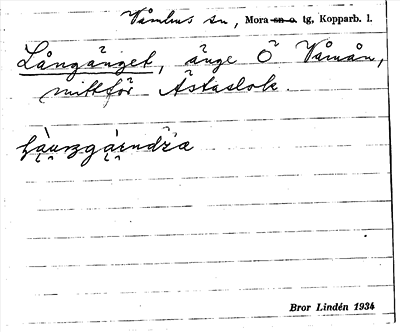 Våmhus sn, Mora sn o. tg, Kopparb. l.
Långänget, änge Ö Våmån,
mittför Ästaslok.
Bror Lindén 1934